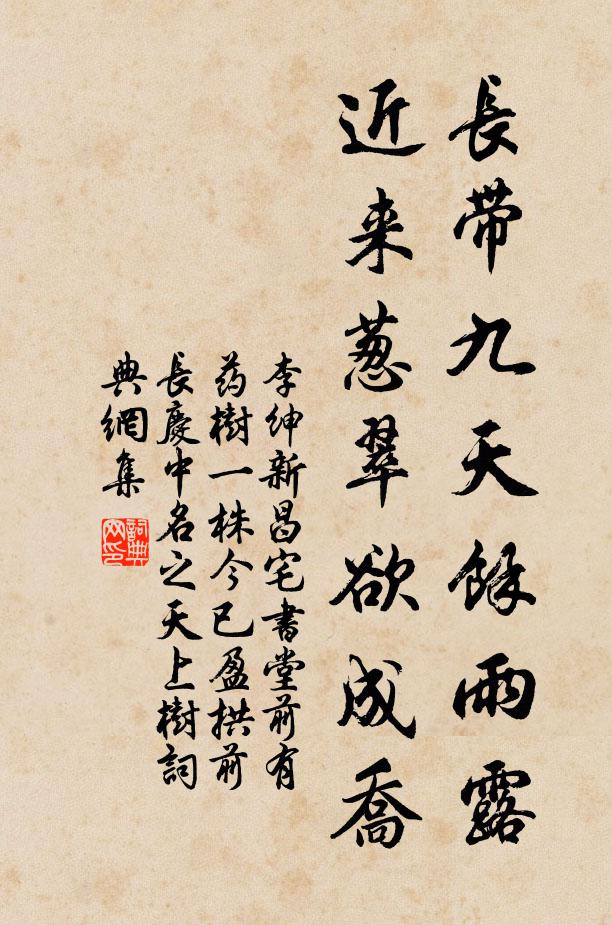 長帶九天餘雨露
近来葱翠欲成喬
李紳新昌宅書堂前有
药樹一株今已盈拱前
長慶中名之天上樹詞
典網集
詞典
网印